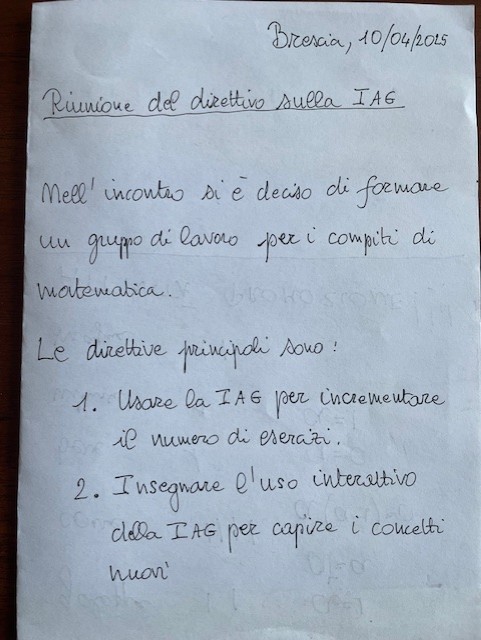 Brescia, 10/04/2025
Riunione del direttivo sulla IAG
Nell'incontro si è deciso di formare
un gruppo di lavoro per i compiti di
matematica.
Le direttive principali sono:
1. Usare la IAG per incrementare
il numero di esercizi.
2. Insegnare l'uso interattivo
della IAG per capire i concetti
nuovi